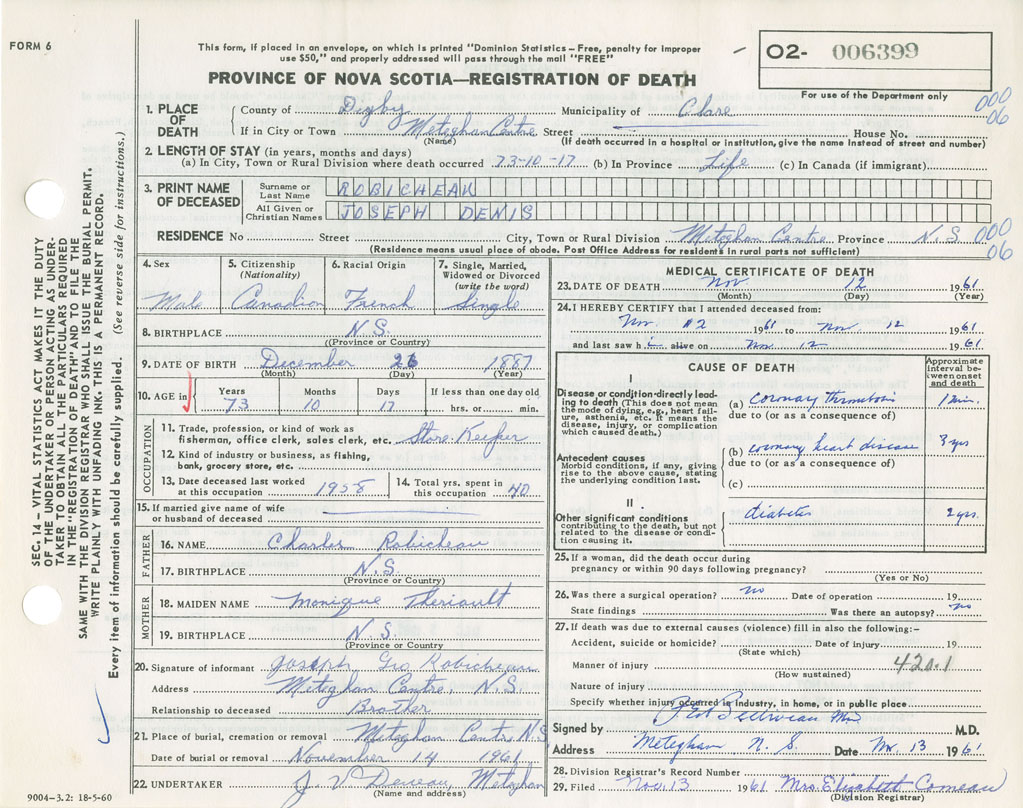 FORM 6
This form, if placed in an envelope, on which is printed "Dominion Statistics – Free, penalty for improper
use $50," and properly addressed will pass through the mail "FREE"
O2- 006399
PROVINCE OF NOVA SCOTIA—REGISTRATION OF DEATH
For use of the Department only
000
06
1. PLACE OF DEATH
County of Digby Municipality of Clare
If in City or Town Meteghan Centre Street House No.
(Name) (If death occurred in a hospital or institution, give the name instead of street and number)
2. LENGTH OF STAY (in years, months and days)
(a) In City, Town or Rural Division where death occurred 73-10-17 (b) In Province Life (c) In Canada (if immigrant)
3. PRINT NAME OF DECEASED
Surname or Last Name ROBICHEAU
All Given or Christian Names JOSEPH DENIS
RESIDENCE No Street City, Town or Rural Division Meteghan Centre Province N.S
000
06
(Residence means usual place of abode. Post Office Address for residents in rural parts not sufficient)
4. Sex Male
5. Citizenship (Nationality) Canadian
6. Racial Origin French
7. Single, Married, Widowed or Divorced (write the word) Single
8. BIRTHPLACE N.S.
(Province or Country)
9. DATE OF BIRTH December 26 1887
(Month) (Day) (Year)
10. AGE in Years Months Days If less than one day old
73 10 17 hrs. or min.
OCCUPATION
11. Trade, profession, or kind of work as
fisherman, office clerk, sales clerk, etc. Store Keeper
12. Kind of industry or business, as fishing,
bank, grocery store, etc.
13. Date deceased last worked at this occupation 1958
14. Total yrs. spent in this occupation 40
15. If married give name of wife
or husband of deceased
FATHER
16. NAME Charles Robicheau
17. BIRTHPLACE N.S.
(Province or Country)
MOTHER
18. MAIDEN NAME Monique Theriault
19. BIRTHPLACE N.S.
(Province or Country
20. Signature of informant Joseph Geo Robicheau
Address Meteghan Centre, N.S.
Relationship to deceased Brother
21. Place of burial, cremation or removal Meteghan Centre N.S
Date of burial or removal November 14 1961
22. UNDERTAKER J. V Deveau, Meteghan
(Name and address)
9004-3.2: 18-5-60
MEDICAL CERTIFICATE OF DEATH
23. DATE OF DEATH Nov 12 1961
(Month) (Day) (Year)
24. I HEREBY CERTIFY that I attended deceased from:
Nov. 2 1961 to Nov 12 1961
and last saw h i alive on Nov. 12 1961
CAUSE OF DEATH
Approximate interval between onset and death
I
Disease or condition directly leading to death (This does not mean the mode of dying, e.g., heart failure, asthenia, etc. It means the disease, injury, or complication which caused death.)
(a) coronary thrombosis 1 min.
due to (or as a consequence of)
Antecedent causes
Morbid conditions, if any, giving rise to the above cause, stating the underlying condition last.
(b) coronary heart disease 3 yrs
due to (or as a consequence of)
(c)
II
Other significant conditions
contributing to the death, but not related to the disease or condition causing it.
diabetes 2 yrs.
25. If a woman, did the death occur during
pregnancy or within 90 days following pregnancy?
(Yes or No)
26. Was there a surgical operation? no Date of operation 19
State findings Was there an autopsy? no
27. If death was due to external causes (violence) fill in also the following:–
Accident, suicide or homicide? Date of injury 19
(State which)
Manner of injury 420.1
(How sustained)
Nature of injury
Specify whether injury occurred in industry, in home, or in public place
Signed by M.D.
Address Meteghan N. S. Date Nov. 13 1961
28. Division Registrar's Record Number
29. Filed Nov. 13 1961 Mrs. Elizabeth Comeau
(Division Registrar)
SEC. 14 – VITAL STATISTICS ACT MAKES IT THE DUTY
OF THE UNDERTAKER OR PERSON ACTING AS UNDER-
TAKER TO OBTAIN ALL THE PARTICULARS REQUIRED
IN THE "REGISTRATION OF DEATH" AND TO FILE THE
SAME WITH THE DIVISION REGISTRAR WHO SHALL ISSUE THE BURIAL PERMIT.
WRITE PLAINLY WITH UNFADING INK. THIS IS A PERMANENT RECORD.
Every item of information should be carefully supplied. (See reverse side for instructions.)